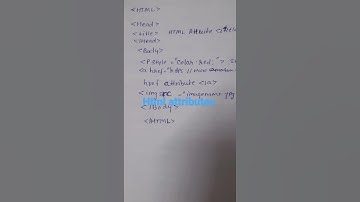 <HTML>
<Head>
<title> HTML Attribute
<Head>
<Body>
<P style="Color:Red;">
<a href="
href attribute </a>
<img src="imagename
Html attributes
</Body>
</HTML>